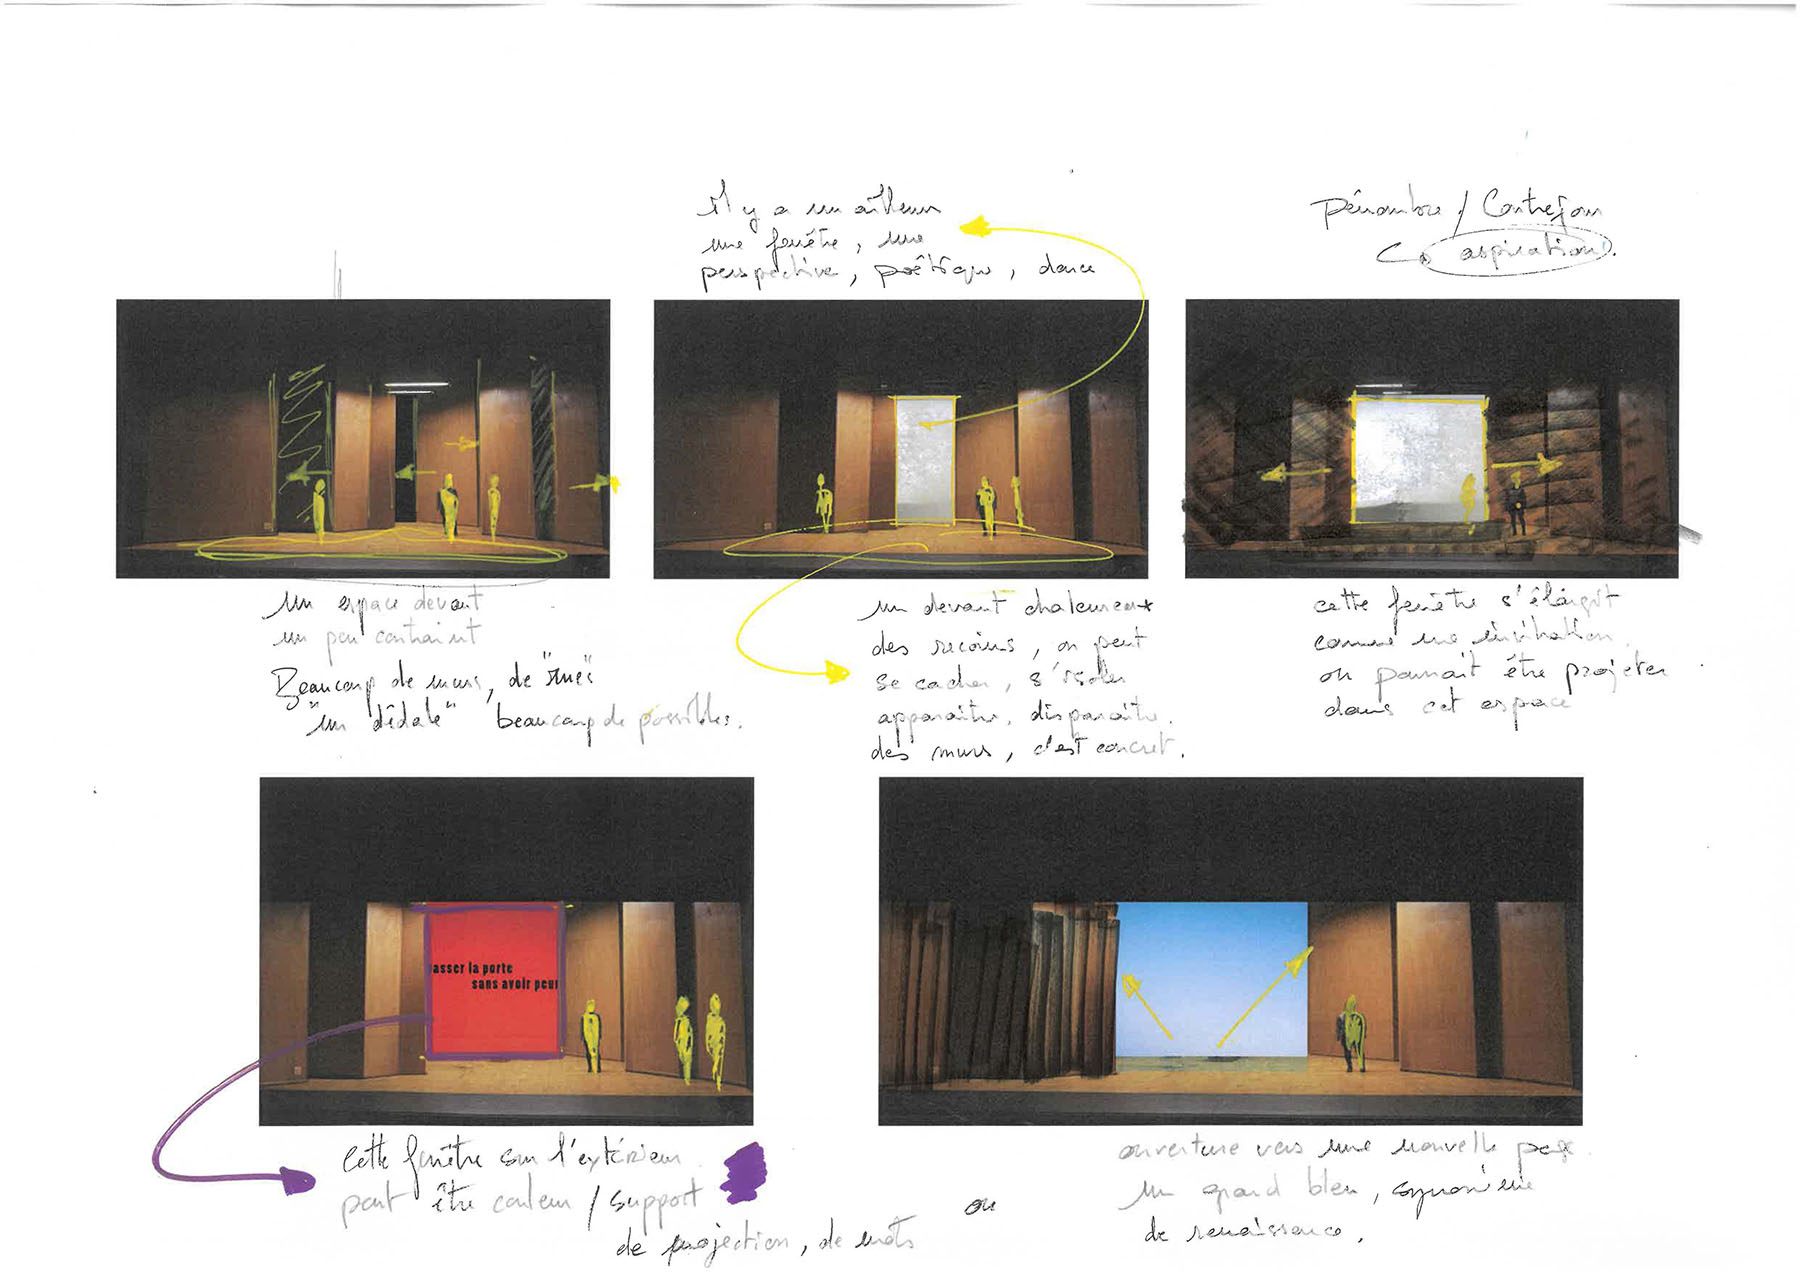 il y a un ailleurs
une fenêtre, une
perspective, poêtique, dance
pénombre / Contrejour
aspiration.
Un espace devant
un peu contraint
Beaucoup de murs, de "rues"
"un dédale" beaucoup de possibles.
un devant chaleureux
des recoins, on peut
se cacher, s'isoler
apparaître, disparaître.
des murs, c'est concret.
cette fenêtre s'élargit
comme une invitation.
on pourrait être projeter
dans cet espace
asser la porte
sans avoir peur
Cette fenêtre sur l'extérieur
peut être couleur / support
de projection, de mots
ou
ouverture vers une nouvelle page.
un grand bleu, synonime
de renaissance.